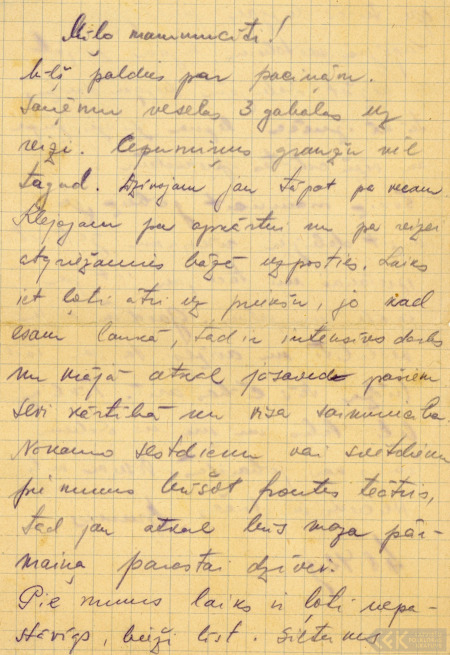 Mīlo mammucīt!
M-lš paldies par paciņām.
Saņēmu veselas 3 gabalas uz
reizi. Cepumiņus graužu vēl
tagad. Dzīvojam jau tāpat pa vecam
Klejojam pa apkārtni un pa reizei
atgriežamies bāzē uzposties. Laiks
iet ļoti ātri uz priekšu, jo kad
esam laukā, tad ir intensīvs darbs
un mājā atkal jāsaved pašiem
sevi kārtībā un visa saimniecība.
Nākamo sestdienu vai svētdienu
pie mums būšot frontes teātris,
tad jau atkal būs maza pār-
maiņa parastai dzīvei.
Pie mums laiks ir ļoti nepa-
stāvīgs, bieži līst. Siltums